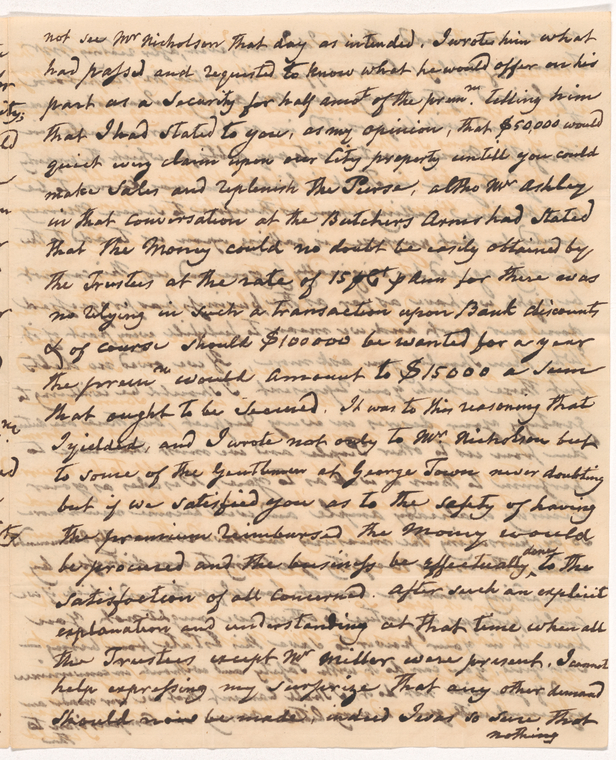 not see Mr Nicholson that day as intended, I wrote him what
had passed and requested to know what he would offer on his
part as a Security for half amot of the premm. telling him
that I had stated to you, as my opinion, that $50,000 would
quiet every claim upon our City property untill you could
make Sales and replenish the Purse, altho Mr Ashley
in that conversation at the Butchers Arms had stated
that the Money could no doubt be easily obtained by
the Trustees at the rate of 15 p Ct p Ann for there was
no relying in such a transaction upon Bank discounts
& of course should $100000 be wanted for a year
the premm would amount to $15000 a sum
that ought to be Secured. It was to this reasoning that
I yielded, and I wrote not only to Mr Nicholson but
to some of the Gentlemen at George Town never doubting
but if we satisfied you as to the safety of having
the premium reimbursed the Money would
be procured and the business be effectually done to the
satisfaction of all concerned. After such an explicit
explanation and understanding at that time when all
the Trustees except Mr Miller were present, I cannot
help expressing my surprize, that any other demand
should now be made. indeed I was so sure that
nothing